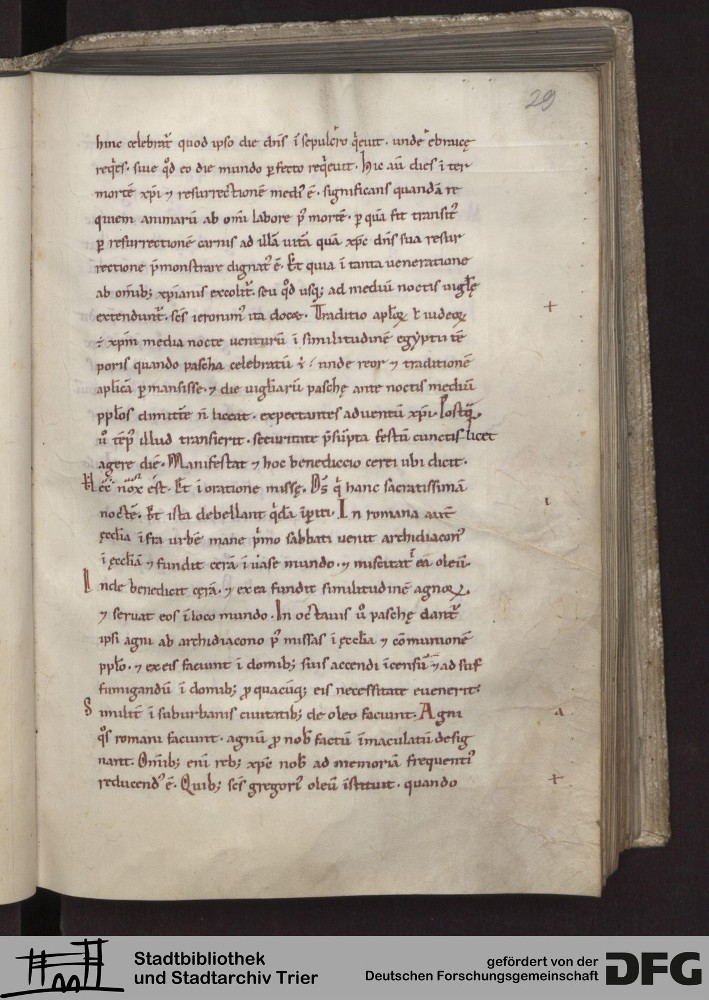 29
hinc celebrat᷒ quod ipso die dn̄s ī sepulcro q̇euit. unde ebraicę
req̇es. siue q̊d eo die mundo ꝑfecto req̇euit. hic aū dies īter
mortē xp̄i ⁊ resurrectionē medi᷒ ē. significans quandā re
quiem animarū ab om̄i labore p᷒ mortē. ꝑ quā fit transit᷒
ꝑ resurrectionē carnis ad illā uitā quā xp̄c dn̄s sua resur
rectione p̄monstrare dignat᷒ ē. Et quia ī tanta ueneratione
ab om̄ib; xp̄ianis excolit᷒. seu q̊d usq; ad mediū noctis uigl̄ię
extendunt᷒. sc̄s ieronim᷒ ita docet. Traditio
xp̄m media nocte uenturū ī similitudinē egyptii tē
poris quando pascha celebratū ē. unde reor ⁊ traditionē
aplicā ꝑmansisse. ⁊ die uigiliarū paschę ante noctis mediū
pp̄los dimittere n̄ liceat. expectantes aduentū xp̄i. Postq̄
ū tēp᷒ illud transierit. securitate p̄sūpta festū cunctis licet
agere diē. Manifestat ⁊ hoc benedictio cerei ubi dicit.
Hęc nox est. Et ī oratione missę. Ds̄ q̇ hanc sacratissimā
noctē. Et ista debellant q̇dā īꝑiti. In romana aut̄
ęcclia īfra urbē mane ṗmo sabbati uenit archidiacon᷒
ī ęccl̄iā ⁊ fundit cerā ī uase mundo. ⁊ miscitat ī eā oleū.
Inde benedicit cerā. ⁊ ex ea fundit similitudinē agnoꝝ.
⁊ seruat eos ī loco mundo. In octauis ū paschę dant᷒
ipsi agni ab archidiacono p᷒ missas ī ęccl̄ia ⁊ cōmunionē
pp̄lo. ⁊ ex eis faciunt ī domib; suis accendi īcensū ⁊ ad suf
fumigandū ī domib; ꝓ quacūq; eis necessitate euenerit.
Similit᷒ ī suburbanis ciuitatib; de oleo faciunt. Agni
q̊s romani faciunt. agnū ꝓ nob᷒ factū īmaculatū desig
nant. Om̄ib; eni reb; xp̄c nob᷒ ad memoriā frequenti᷒
reducend᷒ ē. Quib; sc̄s gregori᷒ oleū īstituit. quando
Stadtbibliothek
und Stadtarchiv Trier
gefördert von der
Deutschen Forschungsgemeinschaft
DFG